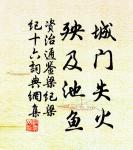 城门失火
殃及池鱼
资治通鉴梁纪梁
纪十六词典网集